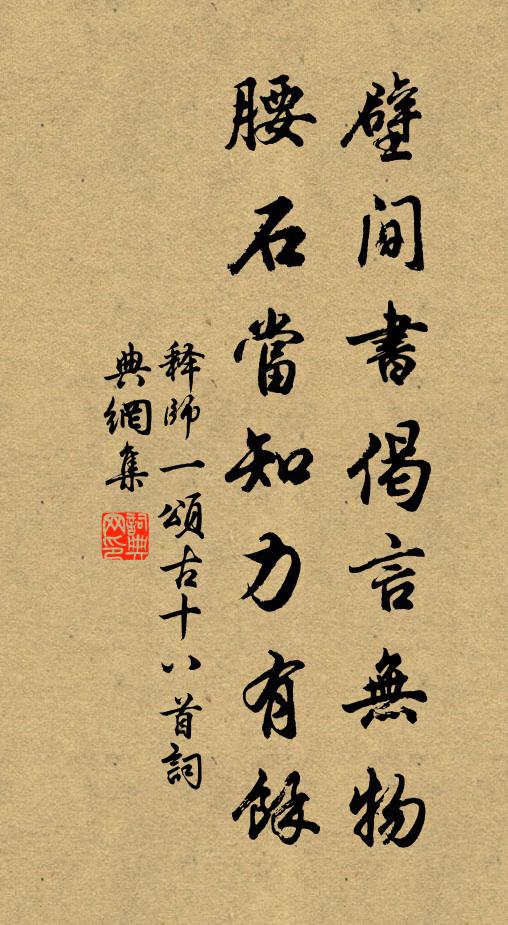 壁間書偈言無物
腰石當知力有餘
释師一頌古十八首詞
典網集
詞典
网印